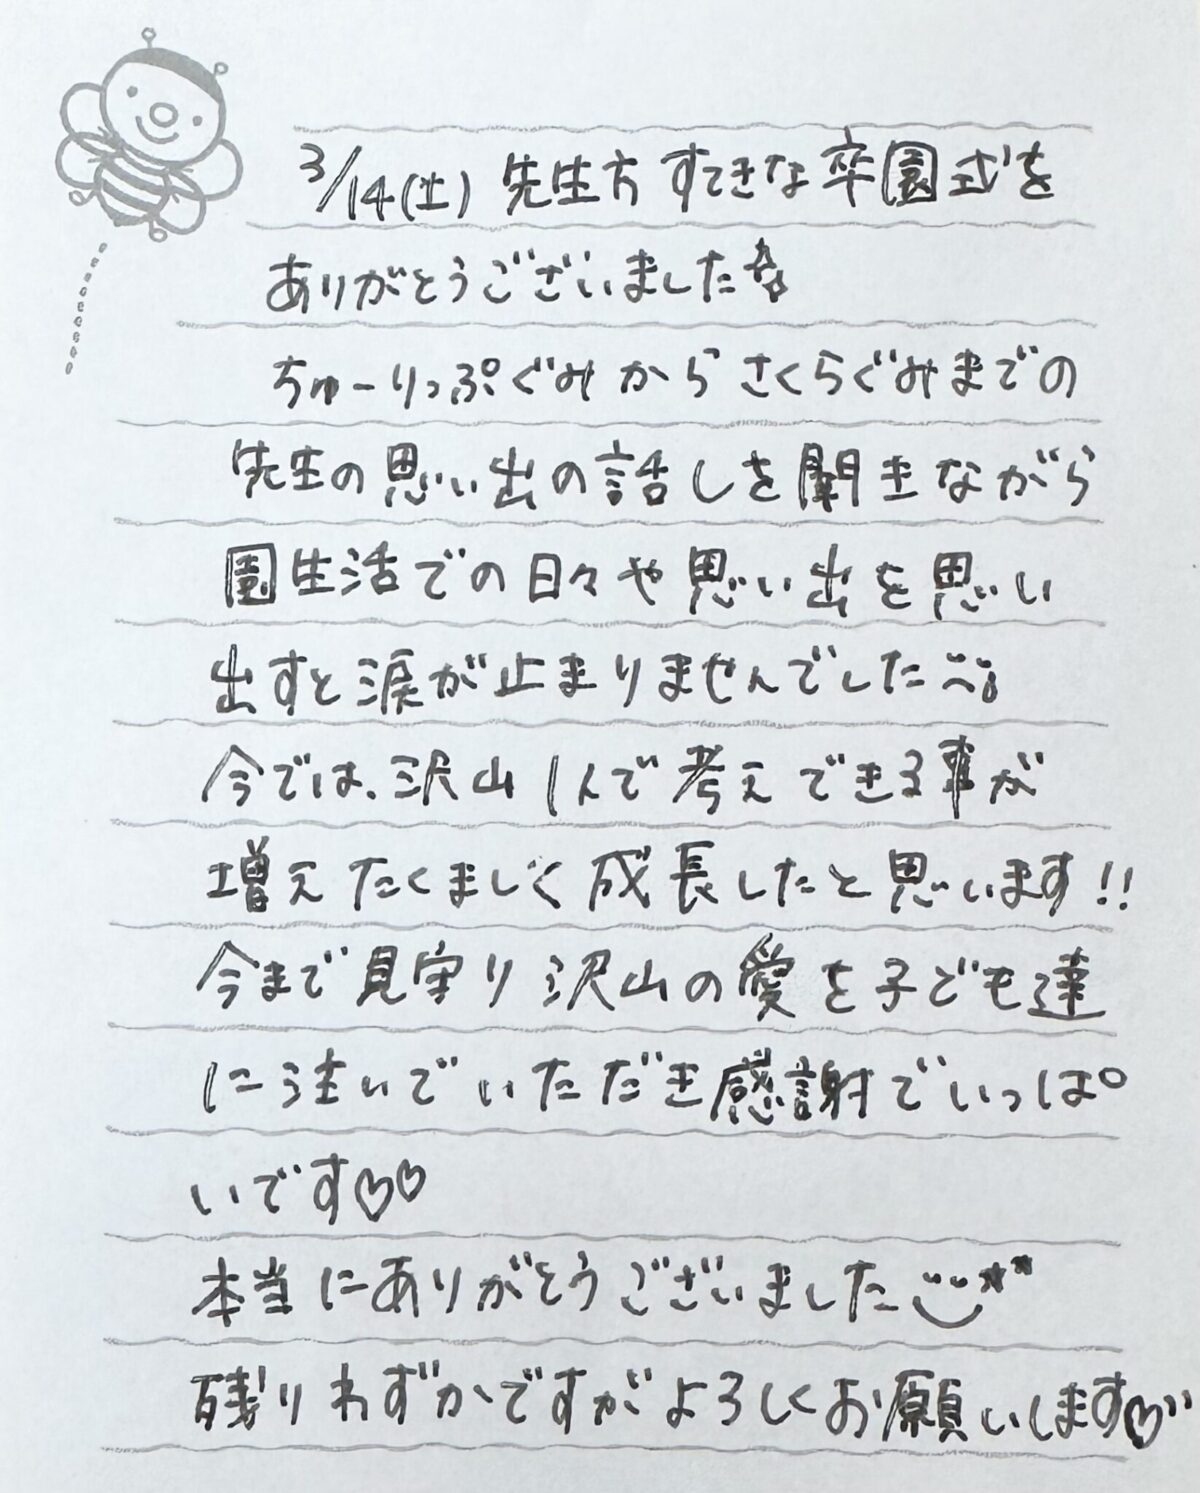 3/14(土) 先生方 すてきな卒園式を
ありがとうございました☆
ちゅーりっぷぐみから さくらぐみまでの
先生の思い出の話しを聞きながら
園生活での日々や思い出を思い
出すと涙が止まりませんでした
今では、沢山1人で考えできる事が
増えたくましく成長したと思います!!
今まで見守り沢山の愛を子ども達
に注いでいただき感謝でいっぱ
いです♡♡
本当にありがとうございました
残りわずかですがよろしくお願いします♡